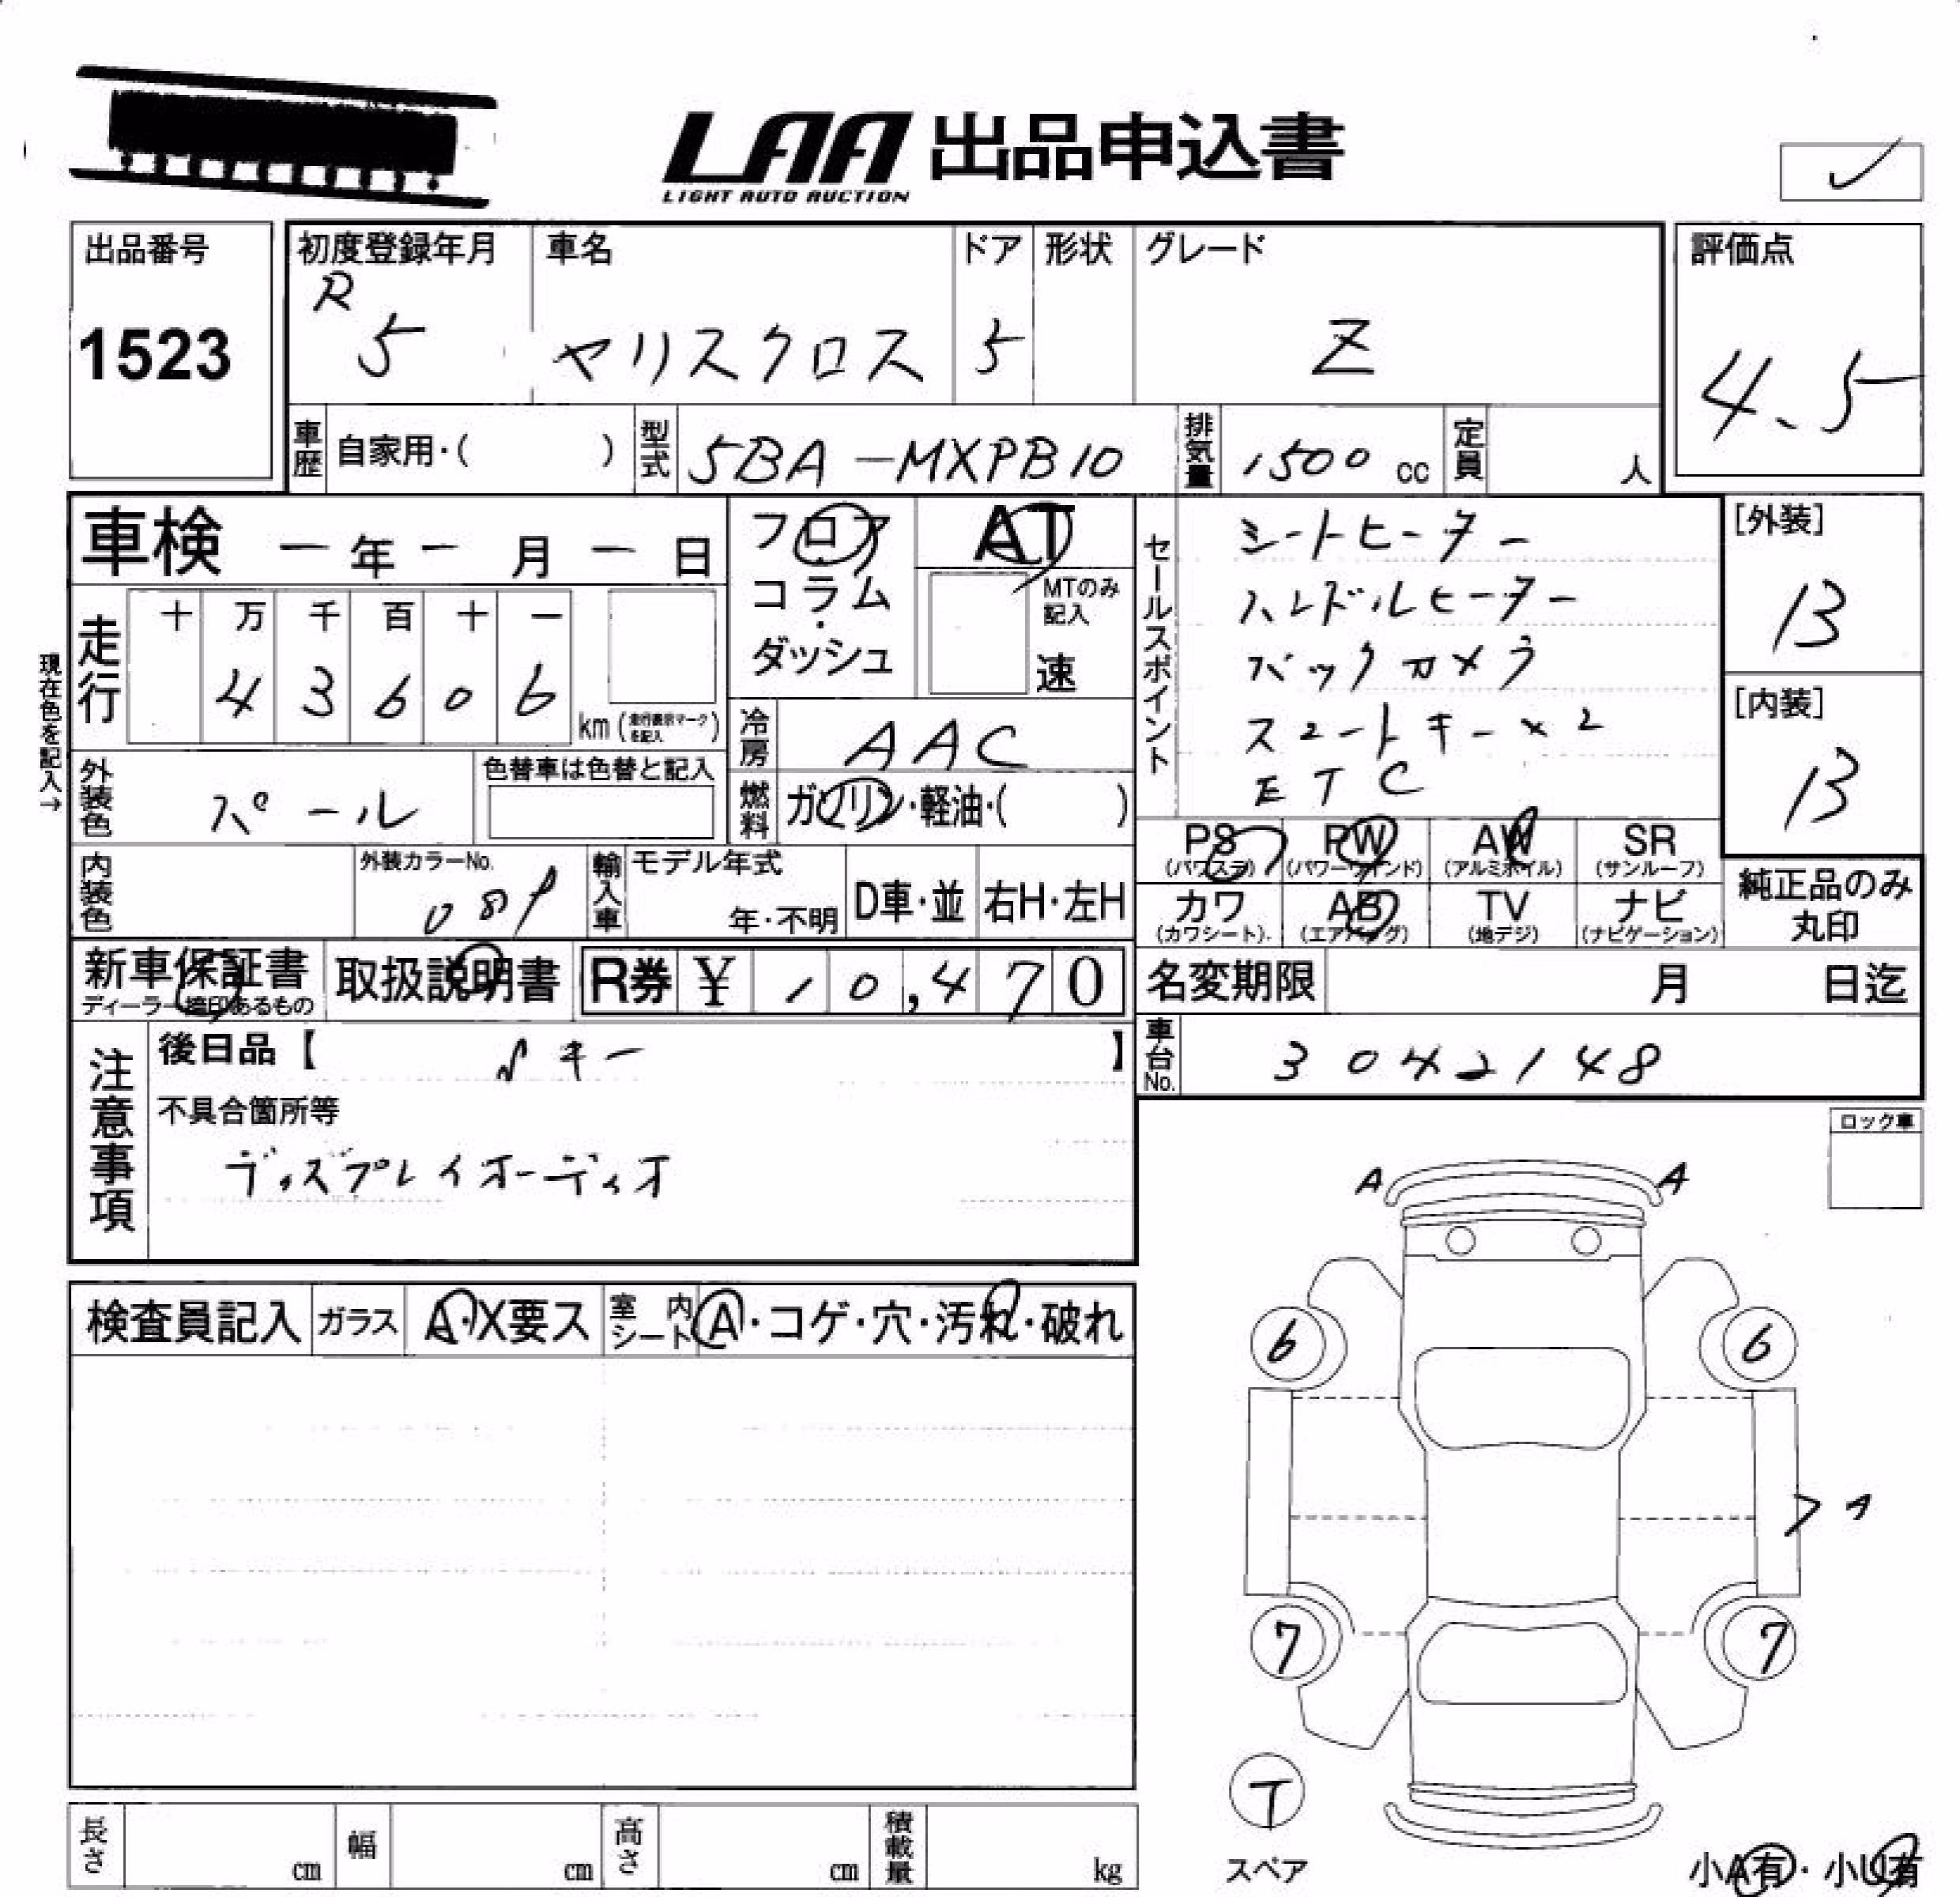 LAA 出品申込書
LIGHT AUTO AUCTION
出品番号
1523
初度登録年月
R
5
車名
ヤリスクロス
ドア
5
形状
グレード
Z
評価点
4.5
車歴 自家用・( )
型式 5BA-MXPB10
排気量 1500 cc
定員 人
車検 ー 年 ー 月 ー 日
フロア
コラム
・
ダッシュ
AT
MTのみ
記入
速
現在色を記入→
走行
十 万 千 百 十 一
4 3 6 0 6
km (走行表示マークを記入)
冷房 AAC
燃料 ガソリン・軽油・( )
外装色 パール
色替車は色替と記入
内装色
外装カラーNo.
089
輸入車
モデル年式
年・不明
D車・並
右H・左H
セールスポイント
シートヒーター
ハンドルヒーター
バックカメラ
スマートキー×2
ETC
[外装]
13
[内装]
13
PS
(パワステ)
PW
(パワーウインド)
AW
(アルミホイル)
SR
(サンルーフ)
カワ
(カワシート)
AB
(エアバッグ)
TV
(地デジ)
ナビ
(ナビゲーション)
純正品のみ
丸印
新車保証書
ディーラー捺印あるもの
取扱説明書
R券 ¥ 10,470
名変期限 月 日迄
車台No. 3042148
注意事項
後日品【 キー 】
不具合箇所等
ディスプレイオーディオ
ロック車
検査員記入
ガラス A・X要ス
室内シート A・コゲ・穴・汚れ・破れ
A A
6 6
A
7 7
T
スペア
小A有・小U有
長さ cm
幅 cm
高さ cm
積載量 kg